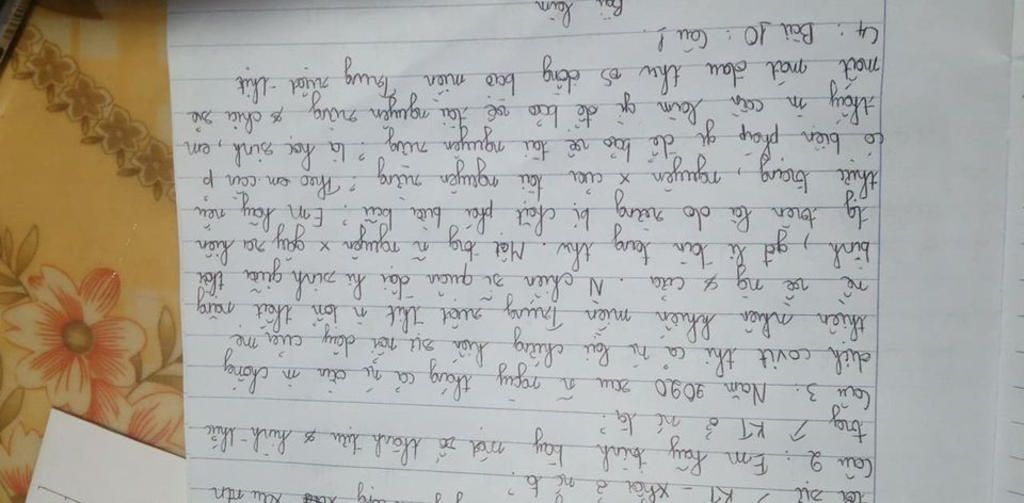 sự > KT - xh ở n tb?
Câu 2: Em hãy trình bày một số thành tựu & hình thức
tng > KT ở nc ta?
Câu 3: Năm 2020 sau n ngày tháng cả nc căng m chống
dịch covit thì cả nc lại chứng kiến sự nổi dậy của mẹ
thiên nhiên khiến miền Trung ruột thịt n tổn thất nặng
nề về ng & của. N chiến sĩ quân đội hi sinh giữa thời
bình, gđ li tán tang thg. Một tng n nguyên x gây ra hiện
tg trên là do rừng bị chặt phá bừa bãi. Em hãy nêu
thực trạng, nguyên x của tài nguyên rừng? Theo em cần p
có biện pháp gì để bảo vệ tài nguyên rừng? là học sinh, em
thấy m cần làm gì để bảo vệ tài nguyên rừng & chia sẻ
mất mát đau thg vs đồng bào miền Trung ruột thịt
C4: Bài 10: Câu 1.
Bài làm